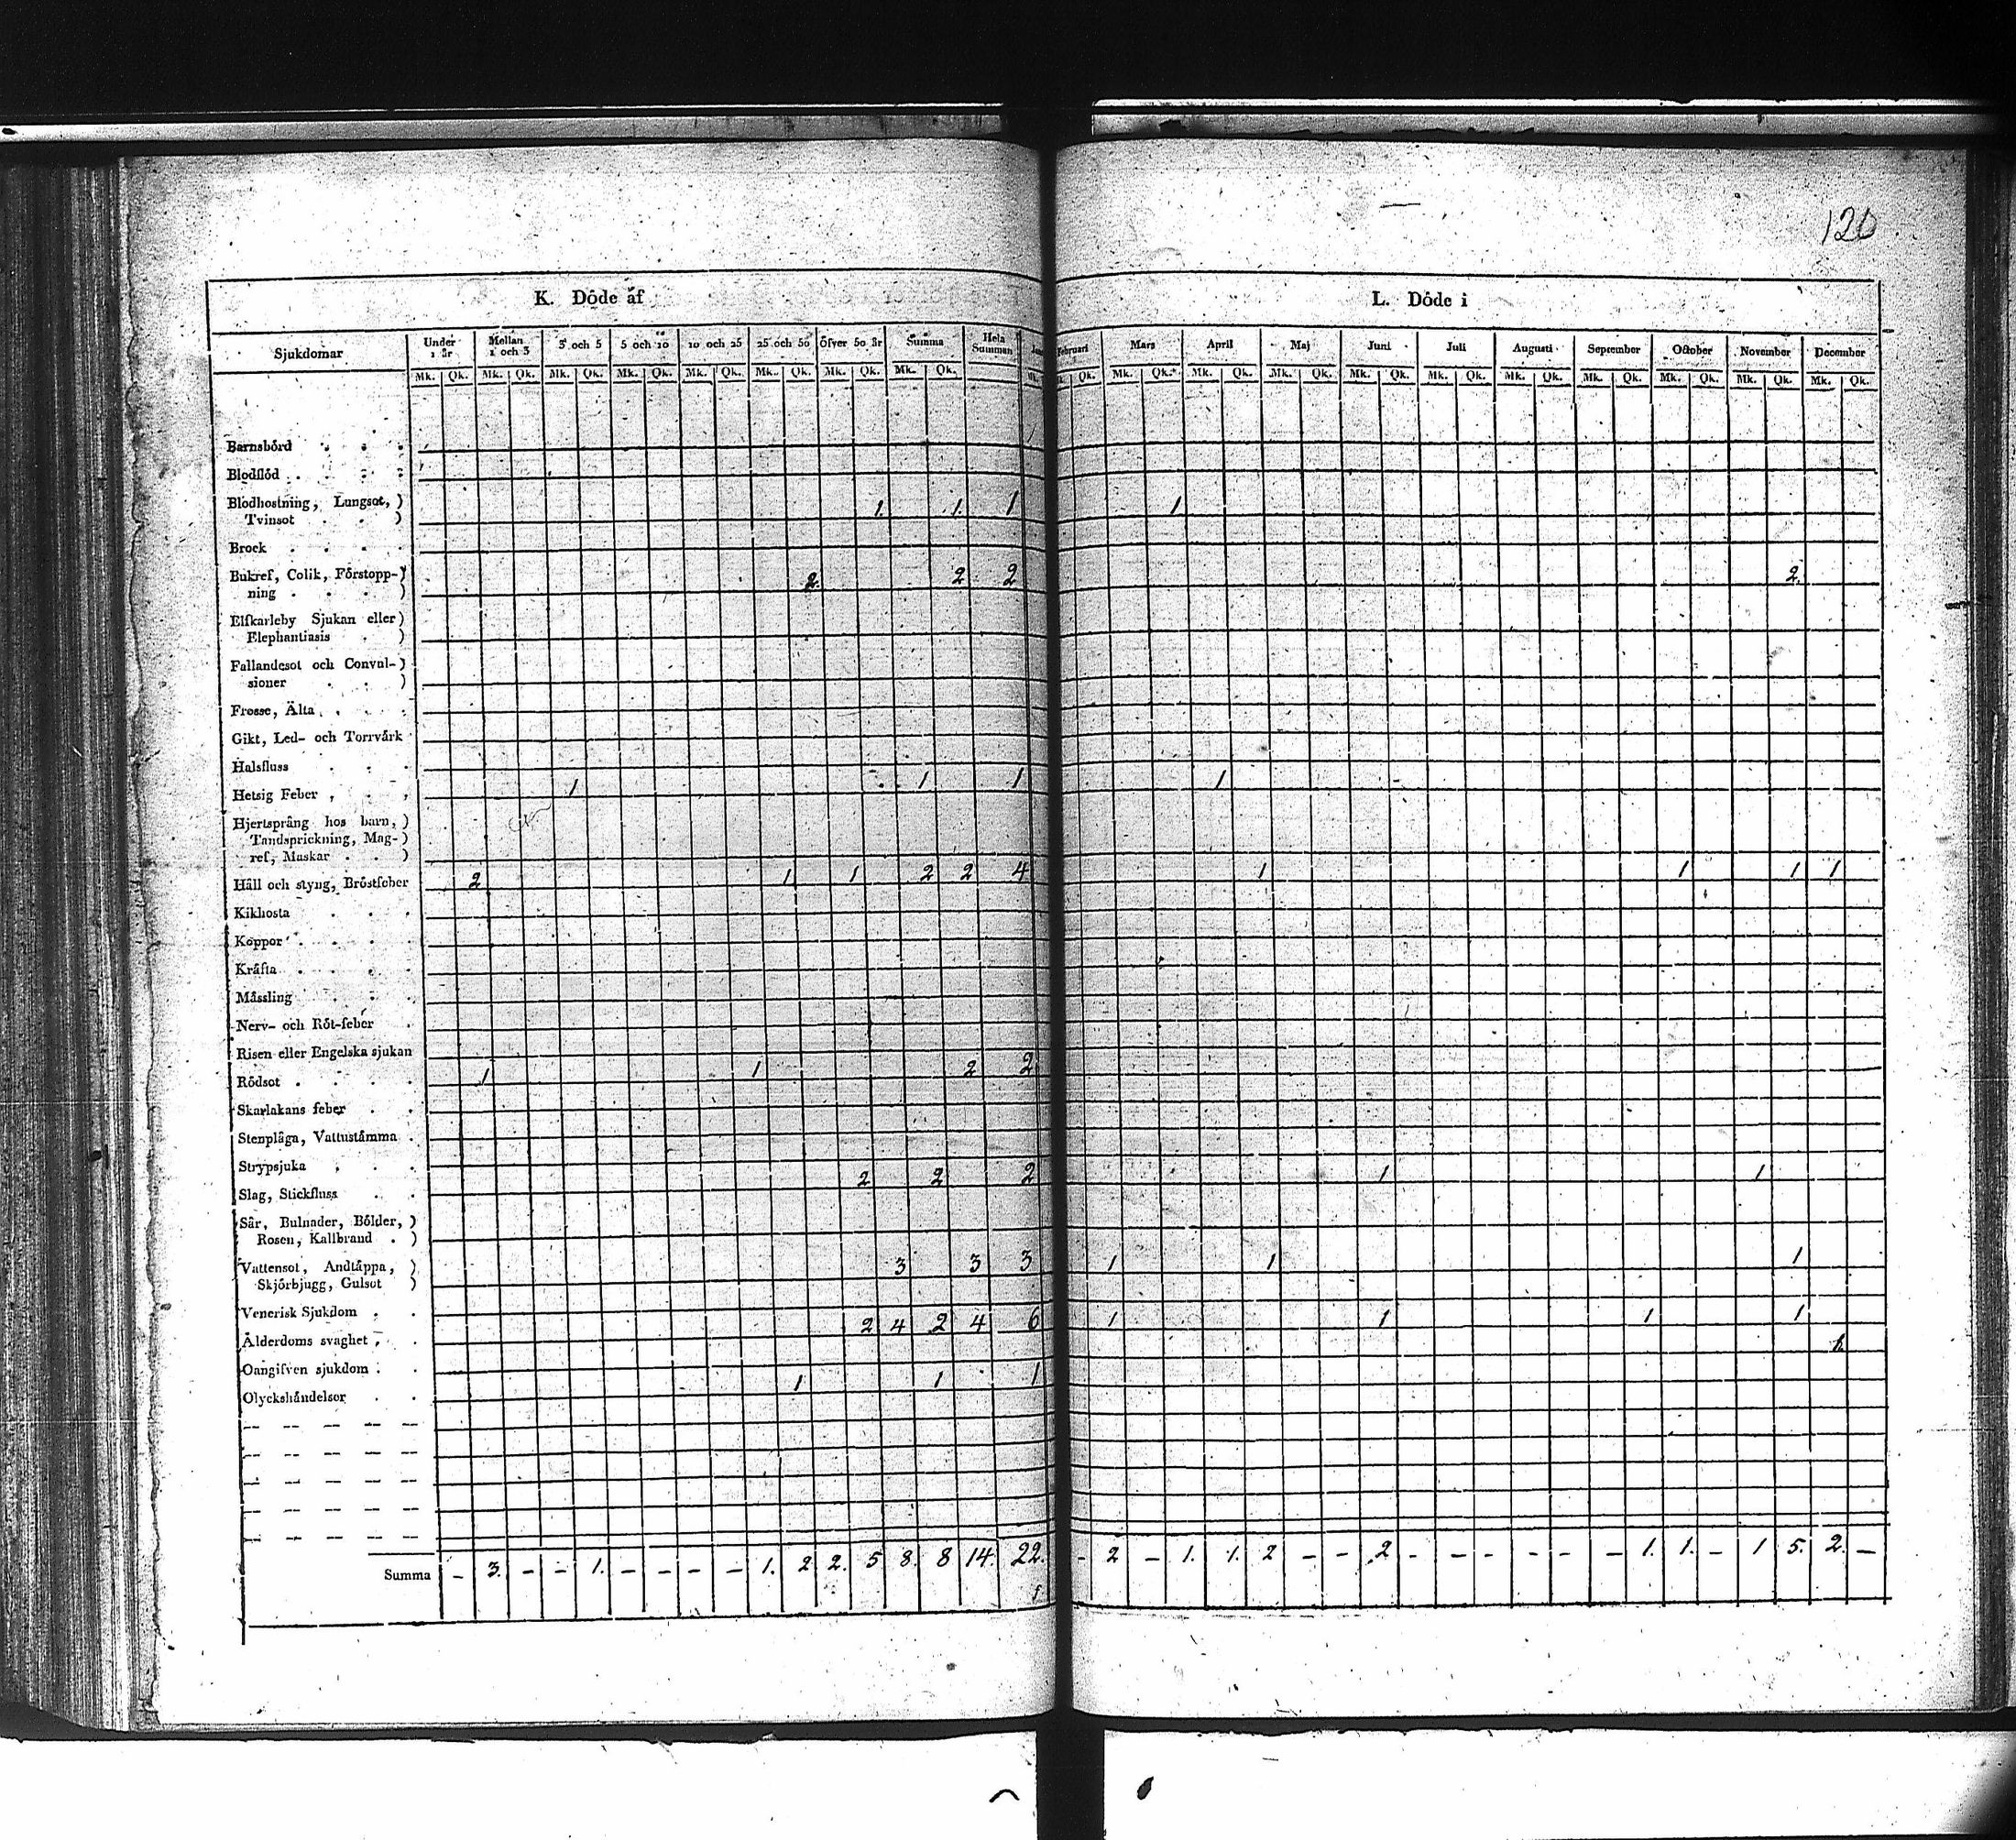 120
K. Döde af
L. Döde i
Sjukdomar Under 1 år Mellan 1 och 3 3 och 5 5 och 10 10 och 25 25 och 50 Öfver 50 år Summa Hela Summan Februari Mars April Maj Juni Juli Augusti September October November December
Mk. Qk. Mk. Qk. Mk. Qk. Mk. Qk. Mk. Qk. Mk. Qk. Mk. Qk. Mk. Qk. Qk. Mk. Qk. Mk. Qk. Mk. Qk. Mk. Qk. Mk. Qk. Mk. Qk. Mk. Qk. Mk. Qk. Mk. Qk. Mk. Qk.
Barnsbörd
Blodflöd
Blodhostning, Lungsot, )
Tvinsot ) 1. 1. 1 1
Brock
Bukref, Colik, Förstopp-)
ning ) 2. 2 2 2.
Elfkarleby Sjukan eller)
Elephantiasis )
Fallandesot och Convul-)
sioner )
Frosse, Älta
Gikt, Led- och Torrvärk
Halsfluss
Hetsig Feber 1 1 1 1
Hjertsprång hos barn, )
Tandsprickning, Mag-)
ref, Maskar )
Håll och styng, Bröstfeber 2 1 1 2 2 4 1 1 1 1
Kikhosta
Koppor
Kräfta
Mässling
Nerv- och Röt-feber
Risen eller Engelska sjukan
Rödsot 1 1 2 2
Skarlakans feber
Stenplåga, Vattustämma
Strypsjuka
Slag, Stickfluss 2 2 2 1 1
Sår, Bulnader, Bölder, )
Rosen, Kallbrand )
Vattensot, Andtäppa, ) 3 3 3 1 1 1
Skjörbjugg, Gulsot )
Venerisk Sjukdom
Ålderdoms svaghet 2 4 2 4 6 1 1 1 1 1.
Oangifven sjukdom
Olyckshändelser 1 1 1
Summa – 3. – – 1. – – – – 1. 2 2. 5 8. 8 14. 22. – 2 – 1. 1. 2 – – 2 – – – – – – 1. 1. – 1 5. 2. –